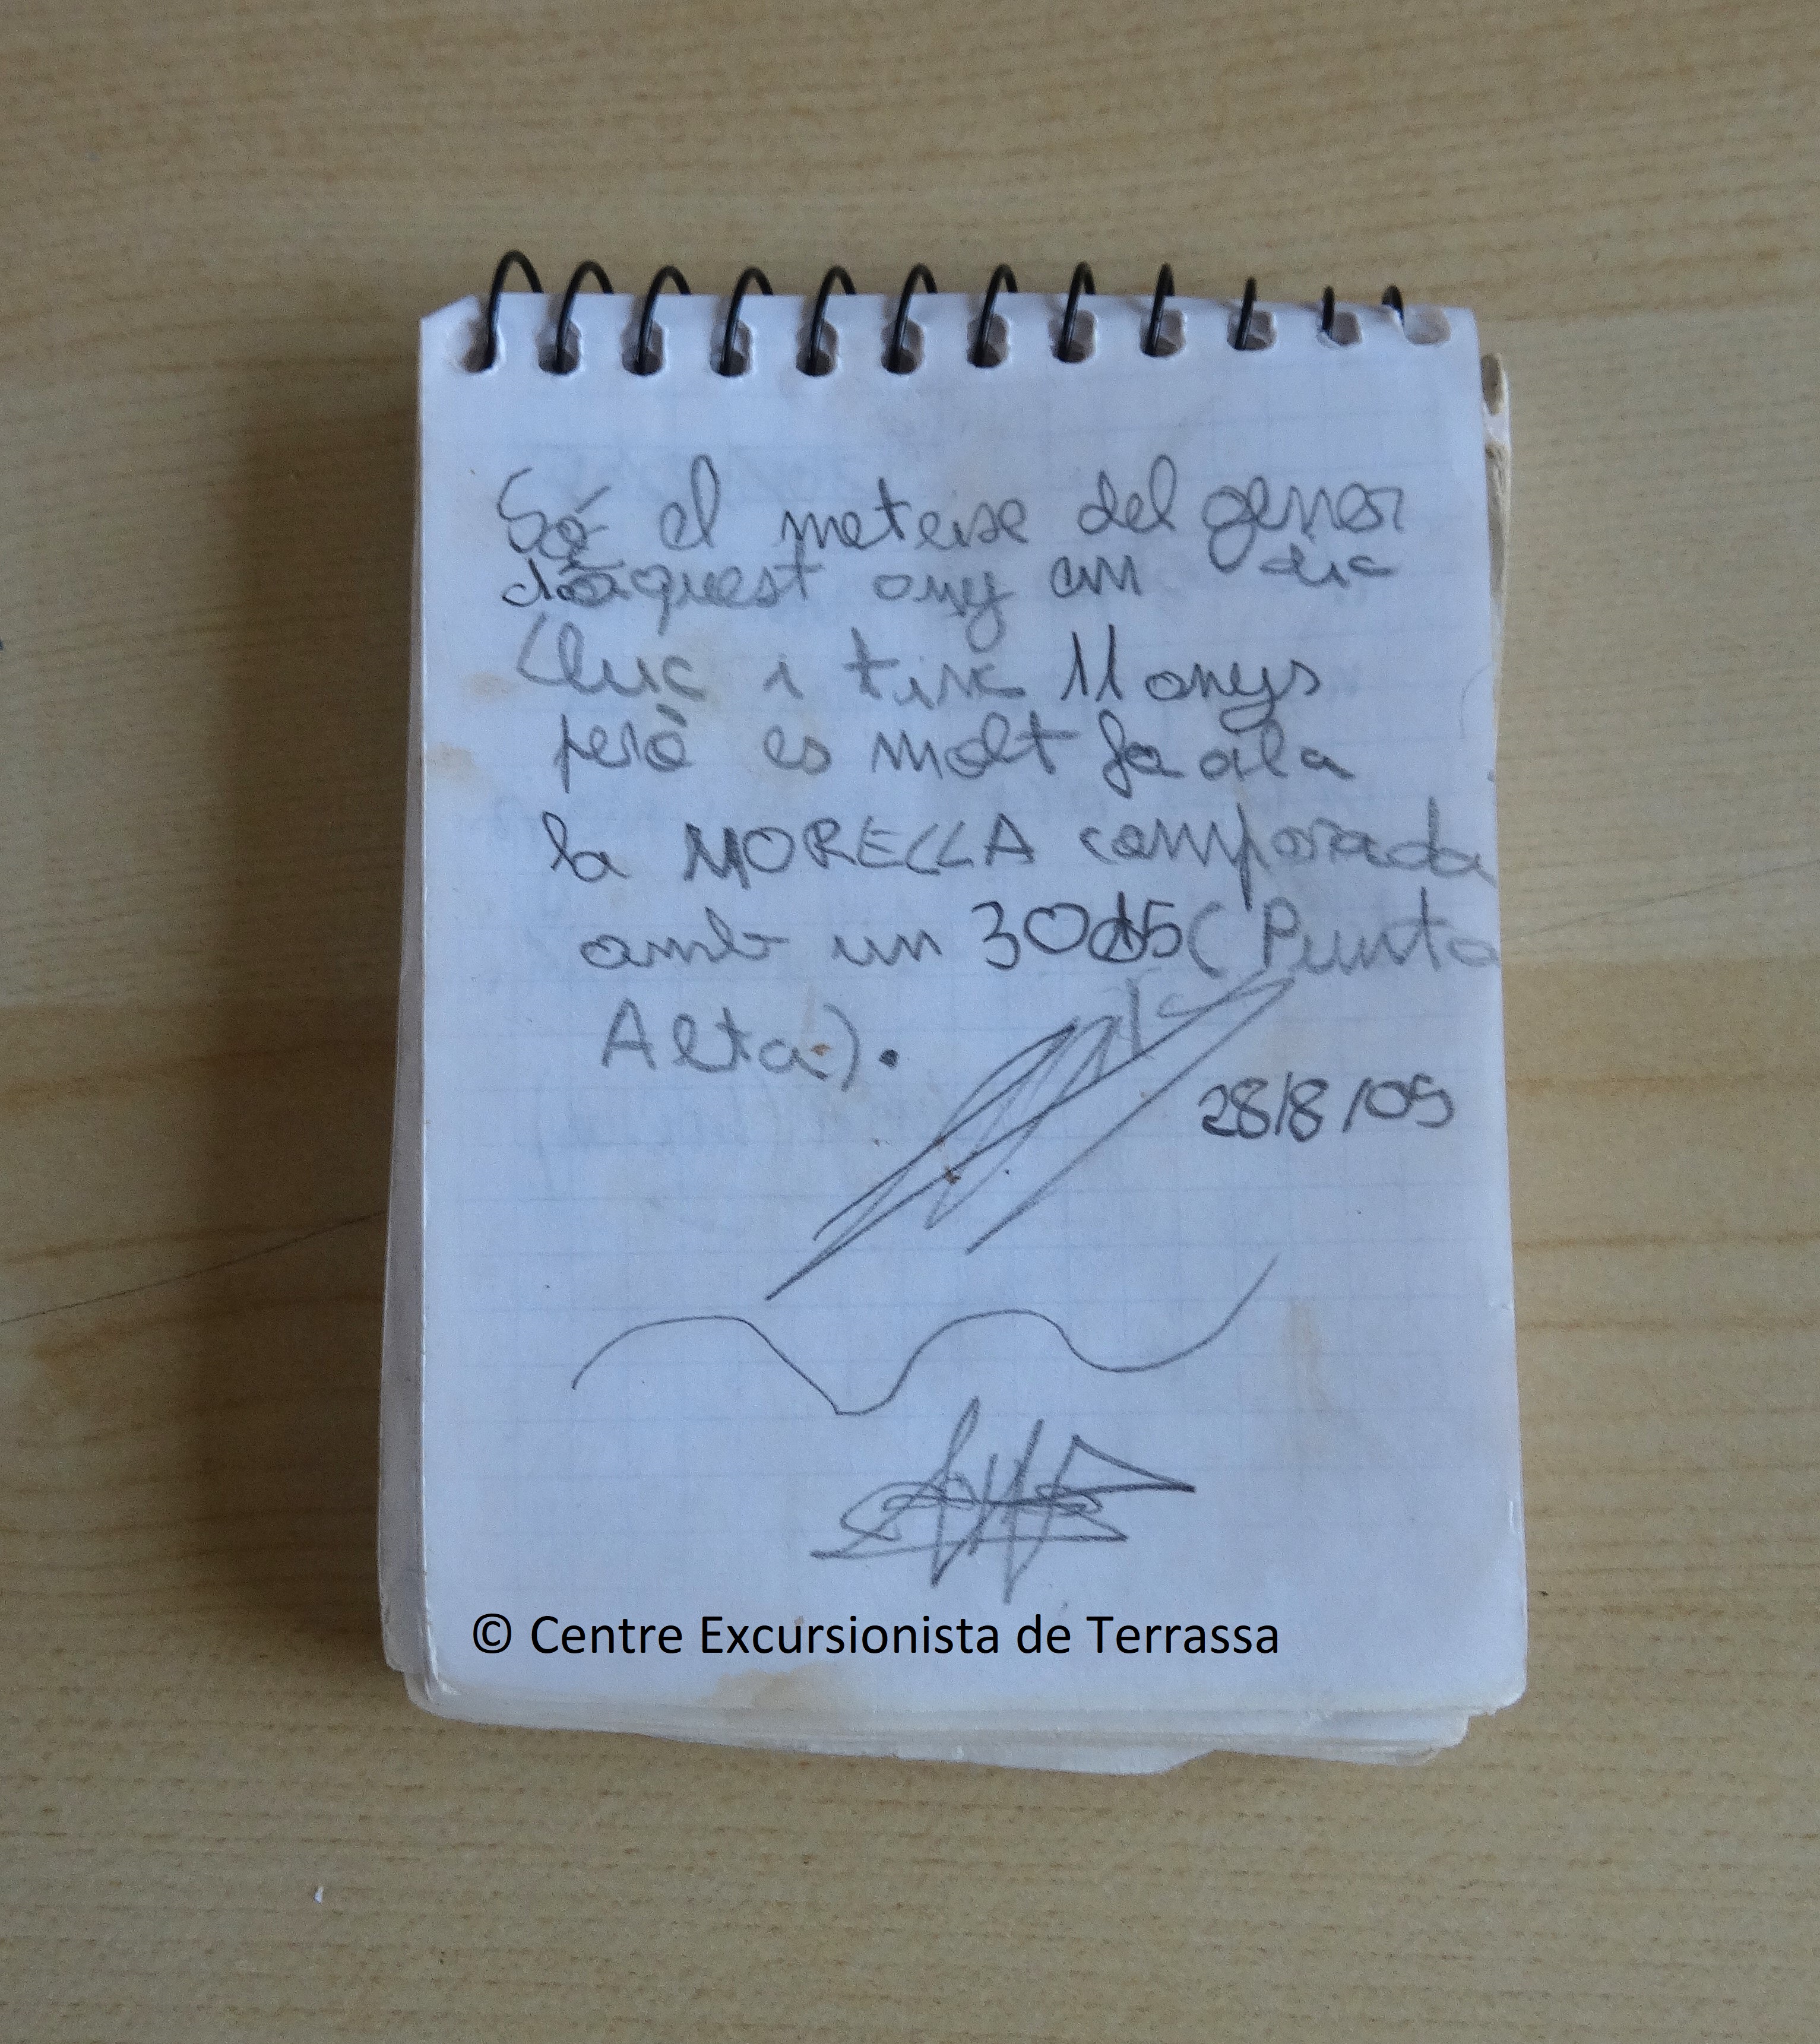 Só el meteixe del gener
d'aquest any em dic
Lluc i tinc 11 anys
però es molt fa ala
la MORELLA comparada
amb un 3015 (Punta
Alta).
28/8/09
© Centre Excursionista de Terrassa